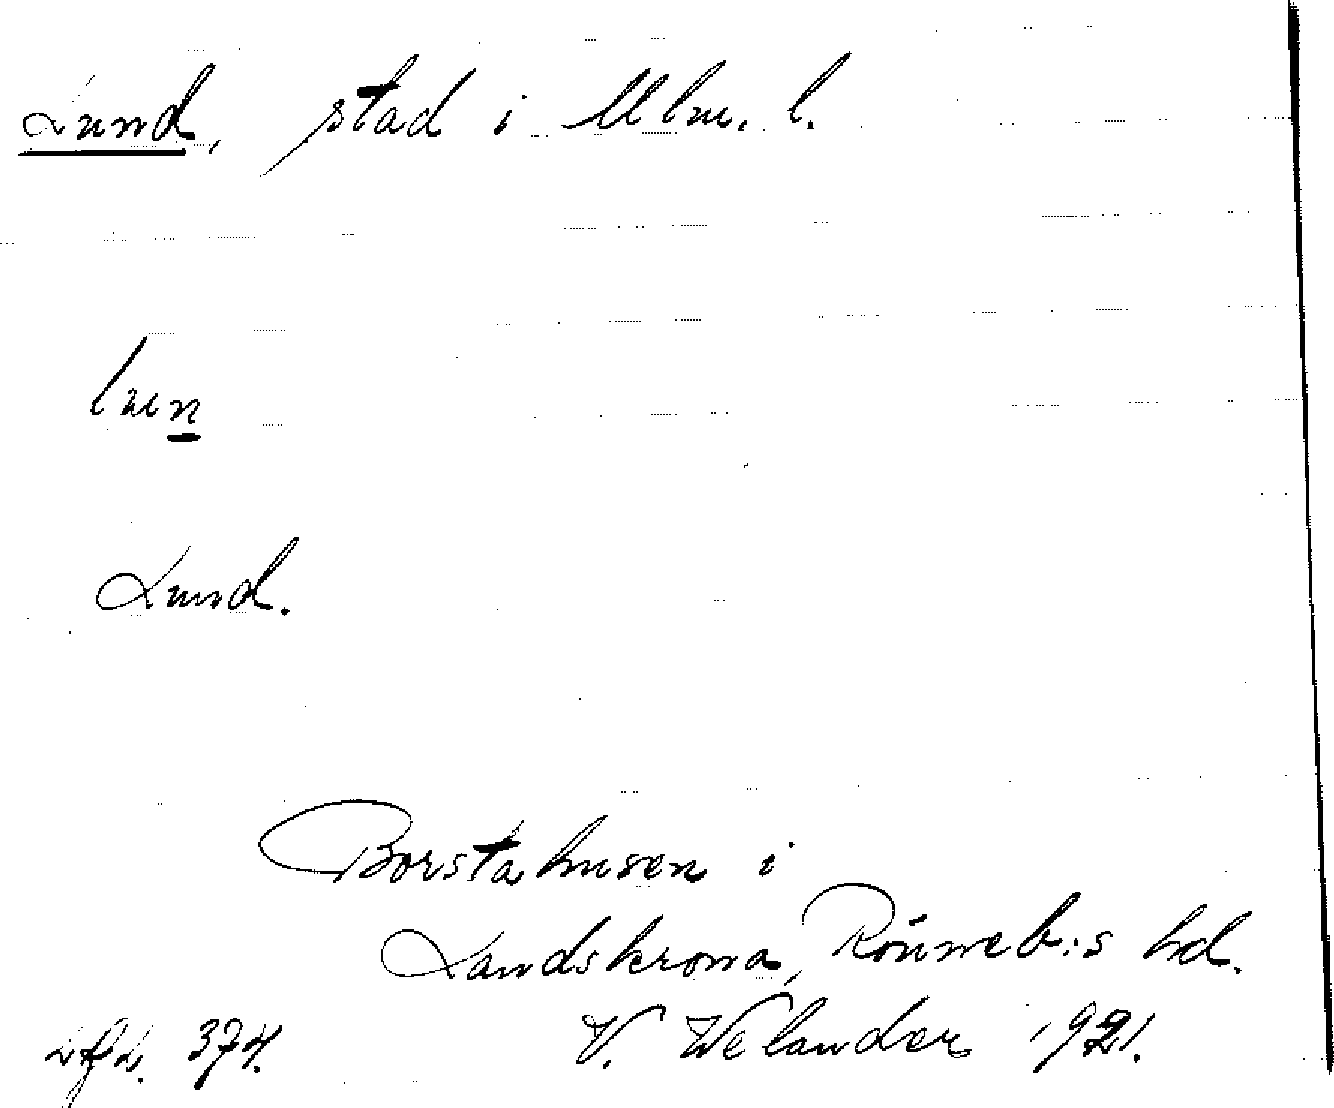 Lund, stad i Mlm. l.
Lund.
Borstahusen i
Landskrona, Rönneb:s hd.
374. V. Welander 1921.